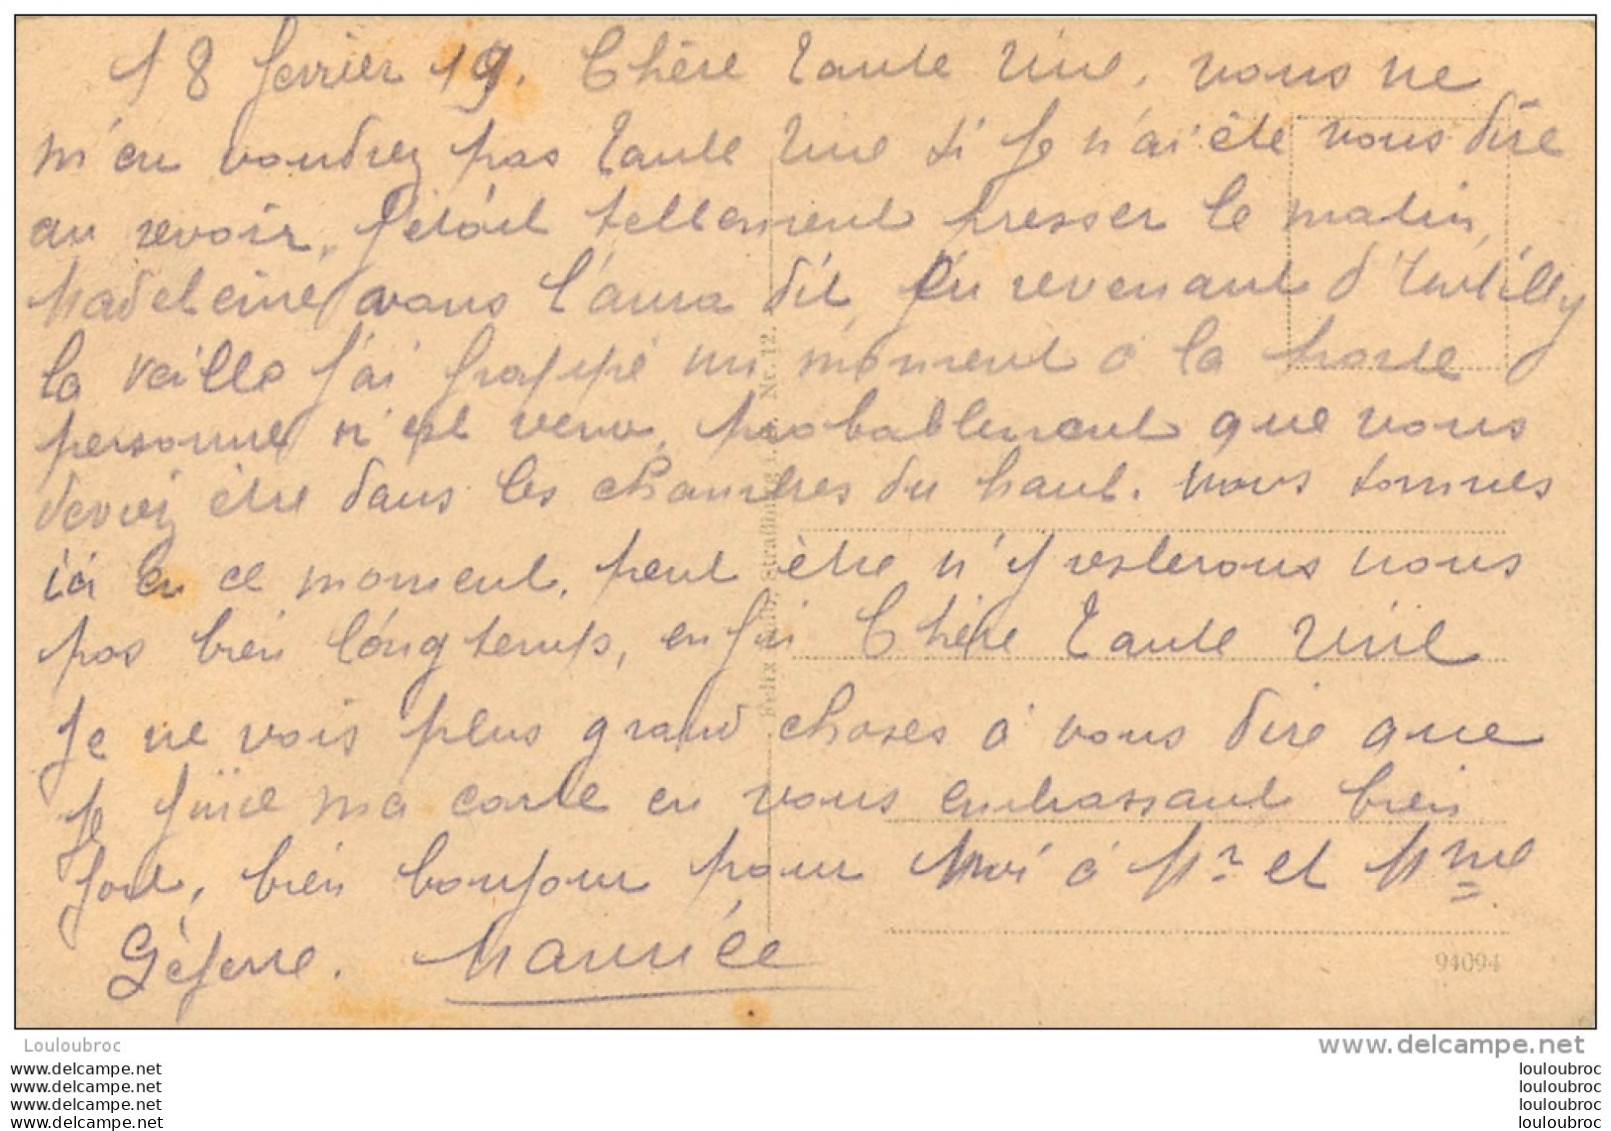 18 fevrier 19. Chère Tante Nine, vous ne
m'en voudrez pas Tante Nine si je n'ai été vous dire
au revoir, j'étáit tellement presser le matin,
Madeleine vous l'aura dit, j'en revenant d'
la veille j'ai frappé un moment á la porte
personne n'est venu, probablement que vous
deviez être dans les chambres du haut. Nous sommes
ici en ce moment, peut être n'y resterons nous
pas bien longtemps, enfin Chère Tante Nine
Je ne vois plus grand choses á vous dire que
je finie ma carte en vous embrassant bien
fort, bien bonjour pour moi á Mr et Mme
Maurice
94094
Louloubroc
www.delcampe.net
www.delcampe.net
www.delcampe.net
www.delcampe.net
www.delcampe.net
louloubroc
louloubroc
louloubroc
louloubroc